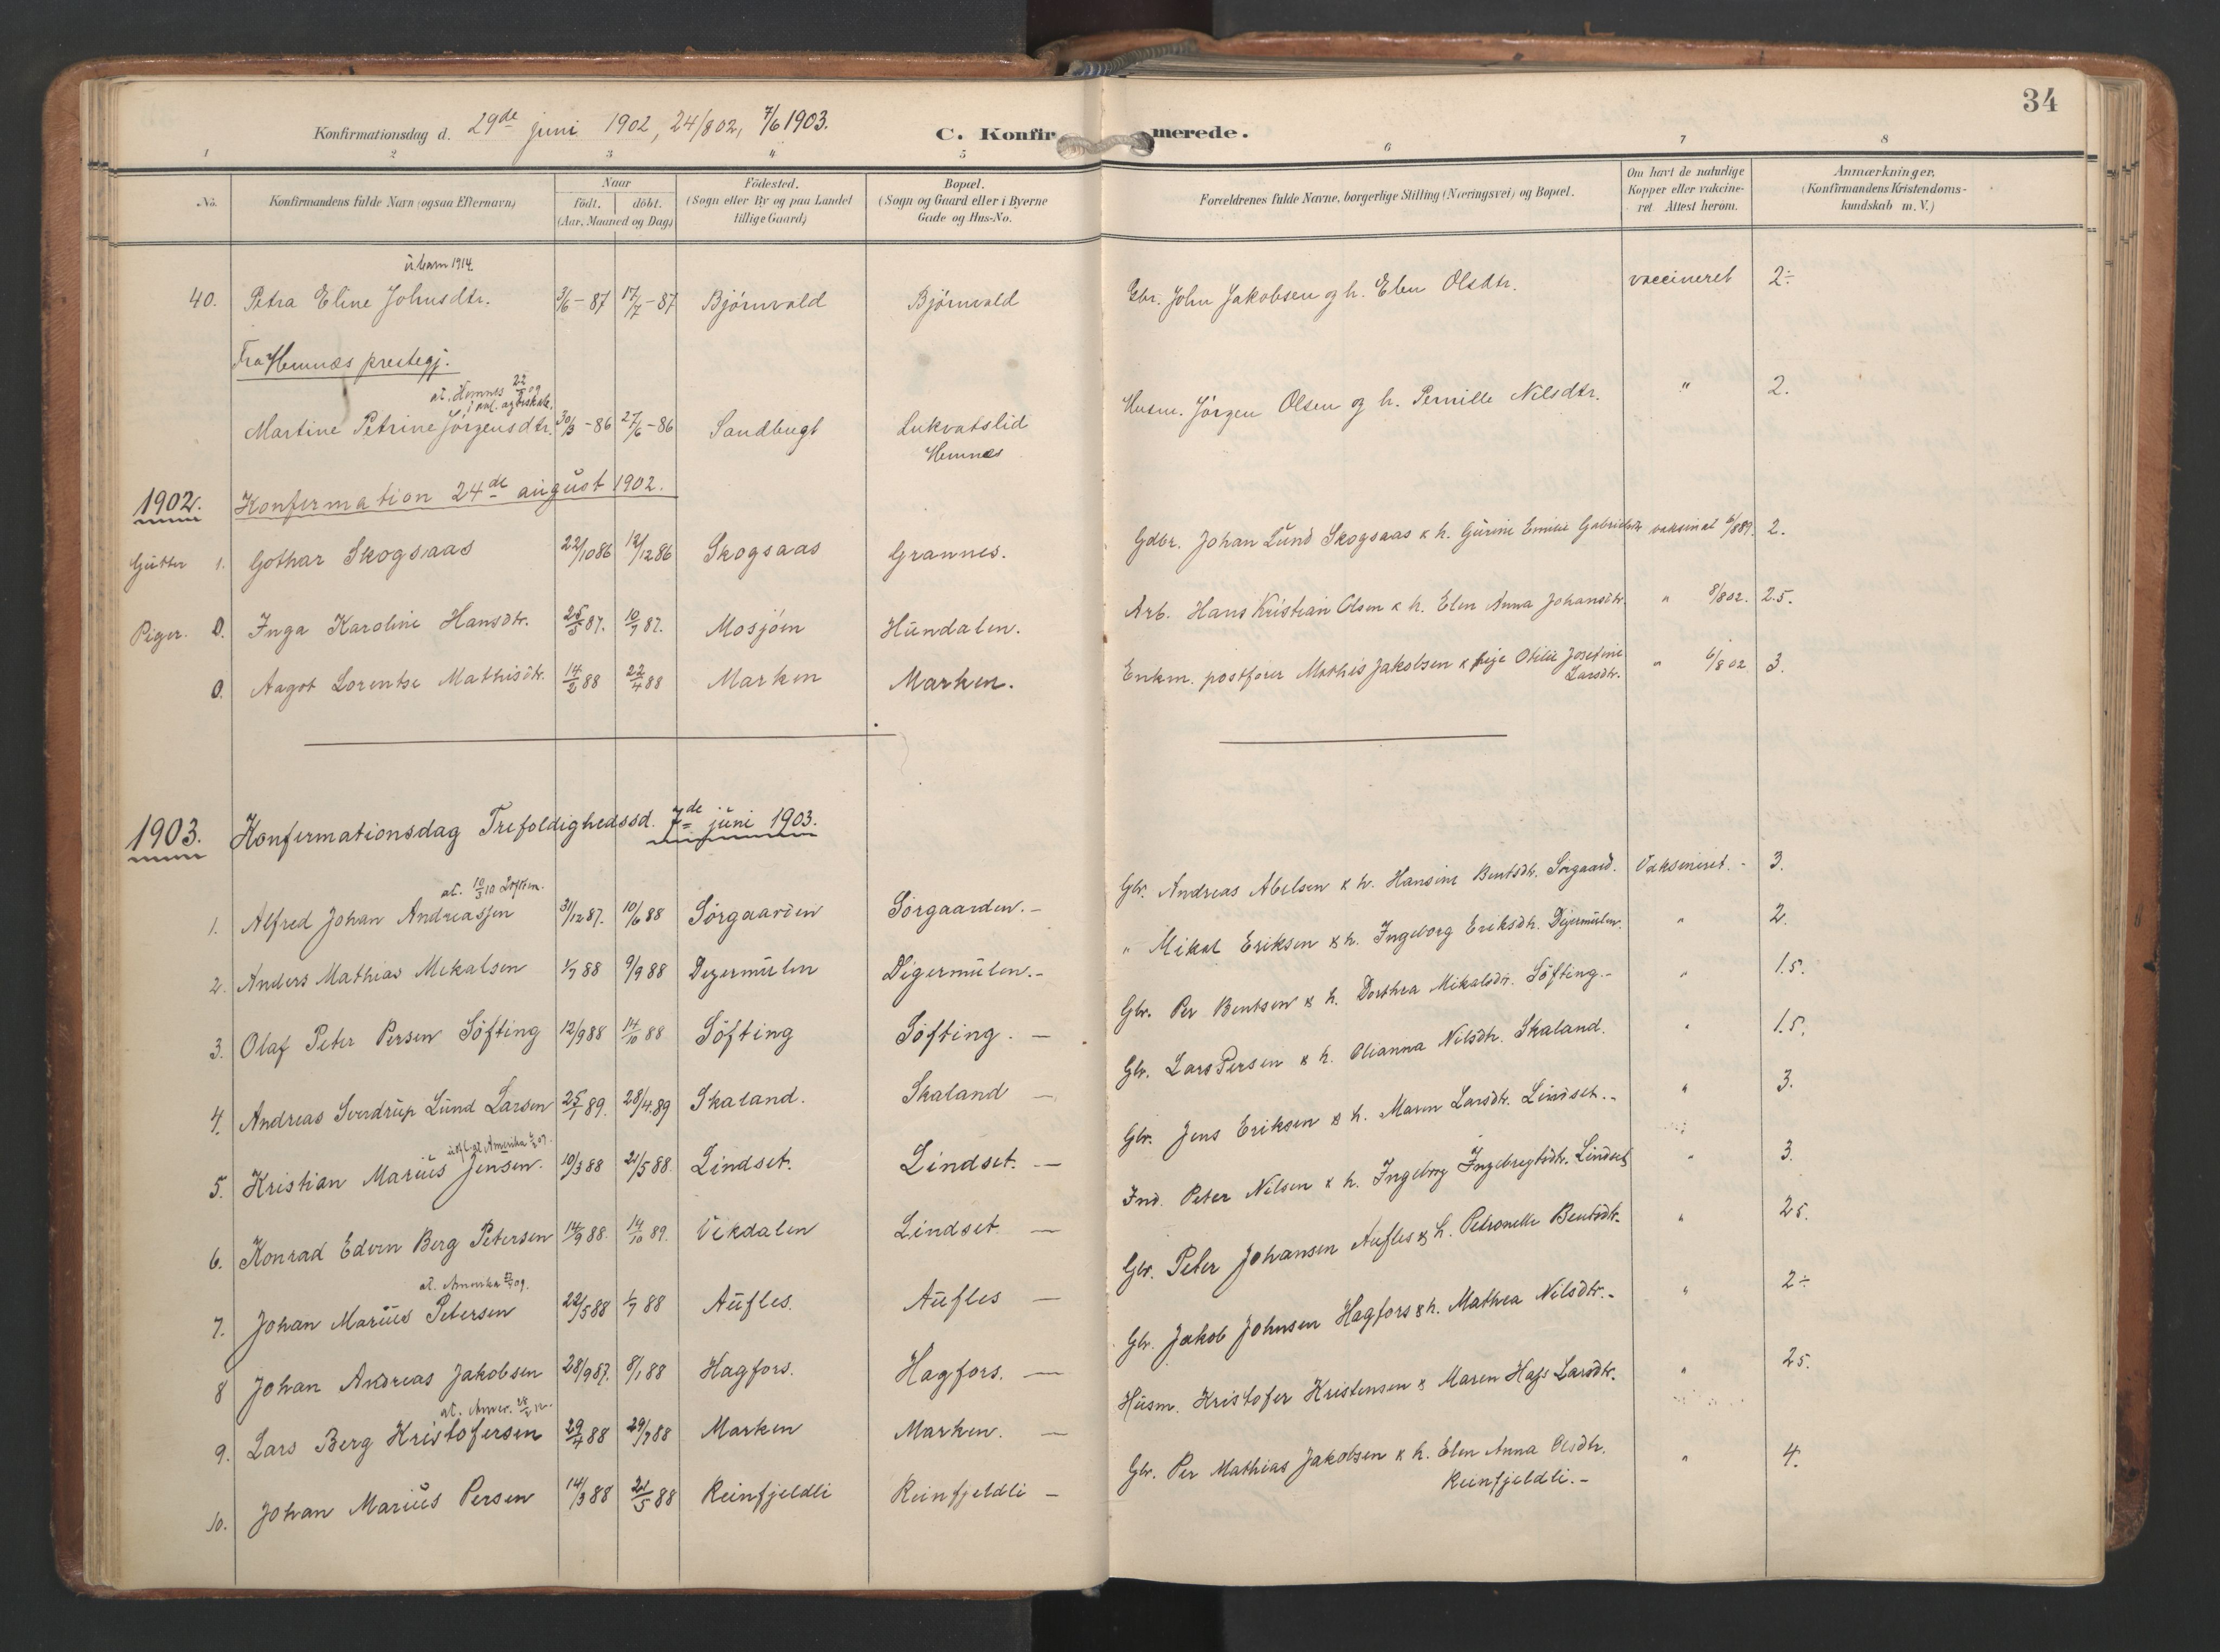 34
Konfirmationsdag d. 29de juni 1902, 24/8 02, 7/6 1903.
C. Konfirmerede.
1 2 3 4 5 6 7 8
No.
Konfirmandens fulde Navn (ogsaa Efternavn)
Naar
födt. döbt.
(Aar, Maaned og Dag)
Födested.
(Sogn eller By og paa Landet
tillige Gaard)
Bopæl.
(Sogn og Gaard eller i Byerne
Gade og Hus-No.
Forældrenes fulde Navne, borgerlige Stilling (Næringsvei) og Bopæl.
Om havt de naturlige
Kopper eller vakcine-
ret. Attest herom.
Anmærkninger,
(Konfirmandens Kristendoms-
kundskab m. V.)
1914.
40. Petra Eline Johnsdtr. 3/6-87 17/7-87 Bjørnvold Bjørnvold Gbr. John Jakobsen og h. Elen Olsdtr. vaccineret 2÷
Fra Hemnæs prestegj.
at. Hemnes
Martine Petrine Jörgensdtr. 30/3-86 27/6-86 Sandbugt Lukvatslid Husm. Jörgen Olsen og h. Pernille Nilsdtr. " 2.
Hemnæs
1902. Konfirmation 24de august 1902.
Gutter 1. Gothar Skogsaas 22/10 86 12/12 86 Skogsaas Grannes. Gdbr. Johan Lund Skogsaas & h. Gurine Emilie Gabrielsdtr vaksinat 6/8 89. 2.
Piger. 0. Inga Karoline Hansdtr. 25/5 87. 10/7 87. Mosjøen Hundalen. Arb. Hans Kristian Olsen & h. Elen Anna Johansdtr. " 8/8 02. 2.5.
0. Aagot Lorentse Mathisdtr. 14/2 88 22/4 88 Marken Marken. Enkm. postfører Mathis Jakobsen & pige Otilie Josefine " 6/8 02 3.
Larsdtr.
1903. Konfirmationsdag Trefoldighedssd. 7de juni 1903.
at. 10/3 10
1. Alfred Johan Andreassen 31/12 87. 10/6 88 Sørgaarden Sørgaarden.- Gbr. Andreas Abelsen & h. Hansine Bentsdtr. Sørgaard. Vaksineret.- 3.
2. Anders Mathias Mikalsen 1/7 88 9/9 88 Digermulen Digermulen.- " Mikal Eriksen & h. Ingeborg Eriksdtr. Digermulen. " 2.
3. Olaf Peter Persen Söfting 12/9 88 14/10 88 Söfting Söfting. - Gbr. Per Bentsen & h. Dorthea Mikalsdtr. Söfting.- " 1.5.
4. Andreas Sverdrup Lund Larsen 25/1 89. 28/4 89 Skaland. Skaland - Gbr. Lars Persen & h. Olianna Nilsdtr. Skaland. " 1.5.
Amerika
5. Kristian Marius Jensen. 10/3 88 21/5 88. Lindset. Lindset. - Gbr. Jens Eriksen & h. Maren Larsdtr. Lindset.- " 3.
6. Konrad Edvin Berg Petersen 14/9 88. 14/10 89. Vikdalen Lindset - Ind. Peter Nilsen & h. Ingeborg Ingebregtsdtr. Lindset " 3.
at. Amerika
7. Johan Marius Petersen 22/5 88 1/7 88 Aufles. Aufles - Gbr. Peter Johansen Aufles & h. Petronelle Bentsdtr. " 2.5.
8 Johan Andreas Jakobsen 28/9 87. 8/1 88 Hagfors. Hagfors. - Gbr. Jakob Johnsen Hagfors & h. Mathea Nilsdtr.- " 2÷
at. Amer.
9. Lars Berg Kristofersen 29/4 88 29/7 88 Marken Marken. - Husm. Kristofer Kristensen & Maren Hass Larsdtr. " 2.5.
10. Johan Marius Persen 14/3 88 21/5 88 Reinfjeldli Reinfjeldli - Gbr. Per Mathias Jakobsen & h. Elen Anna Olsdtr. " 4.
Reinfjeldli.-